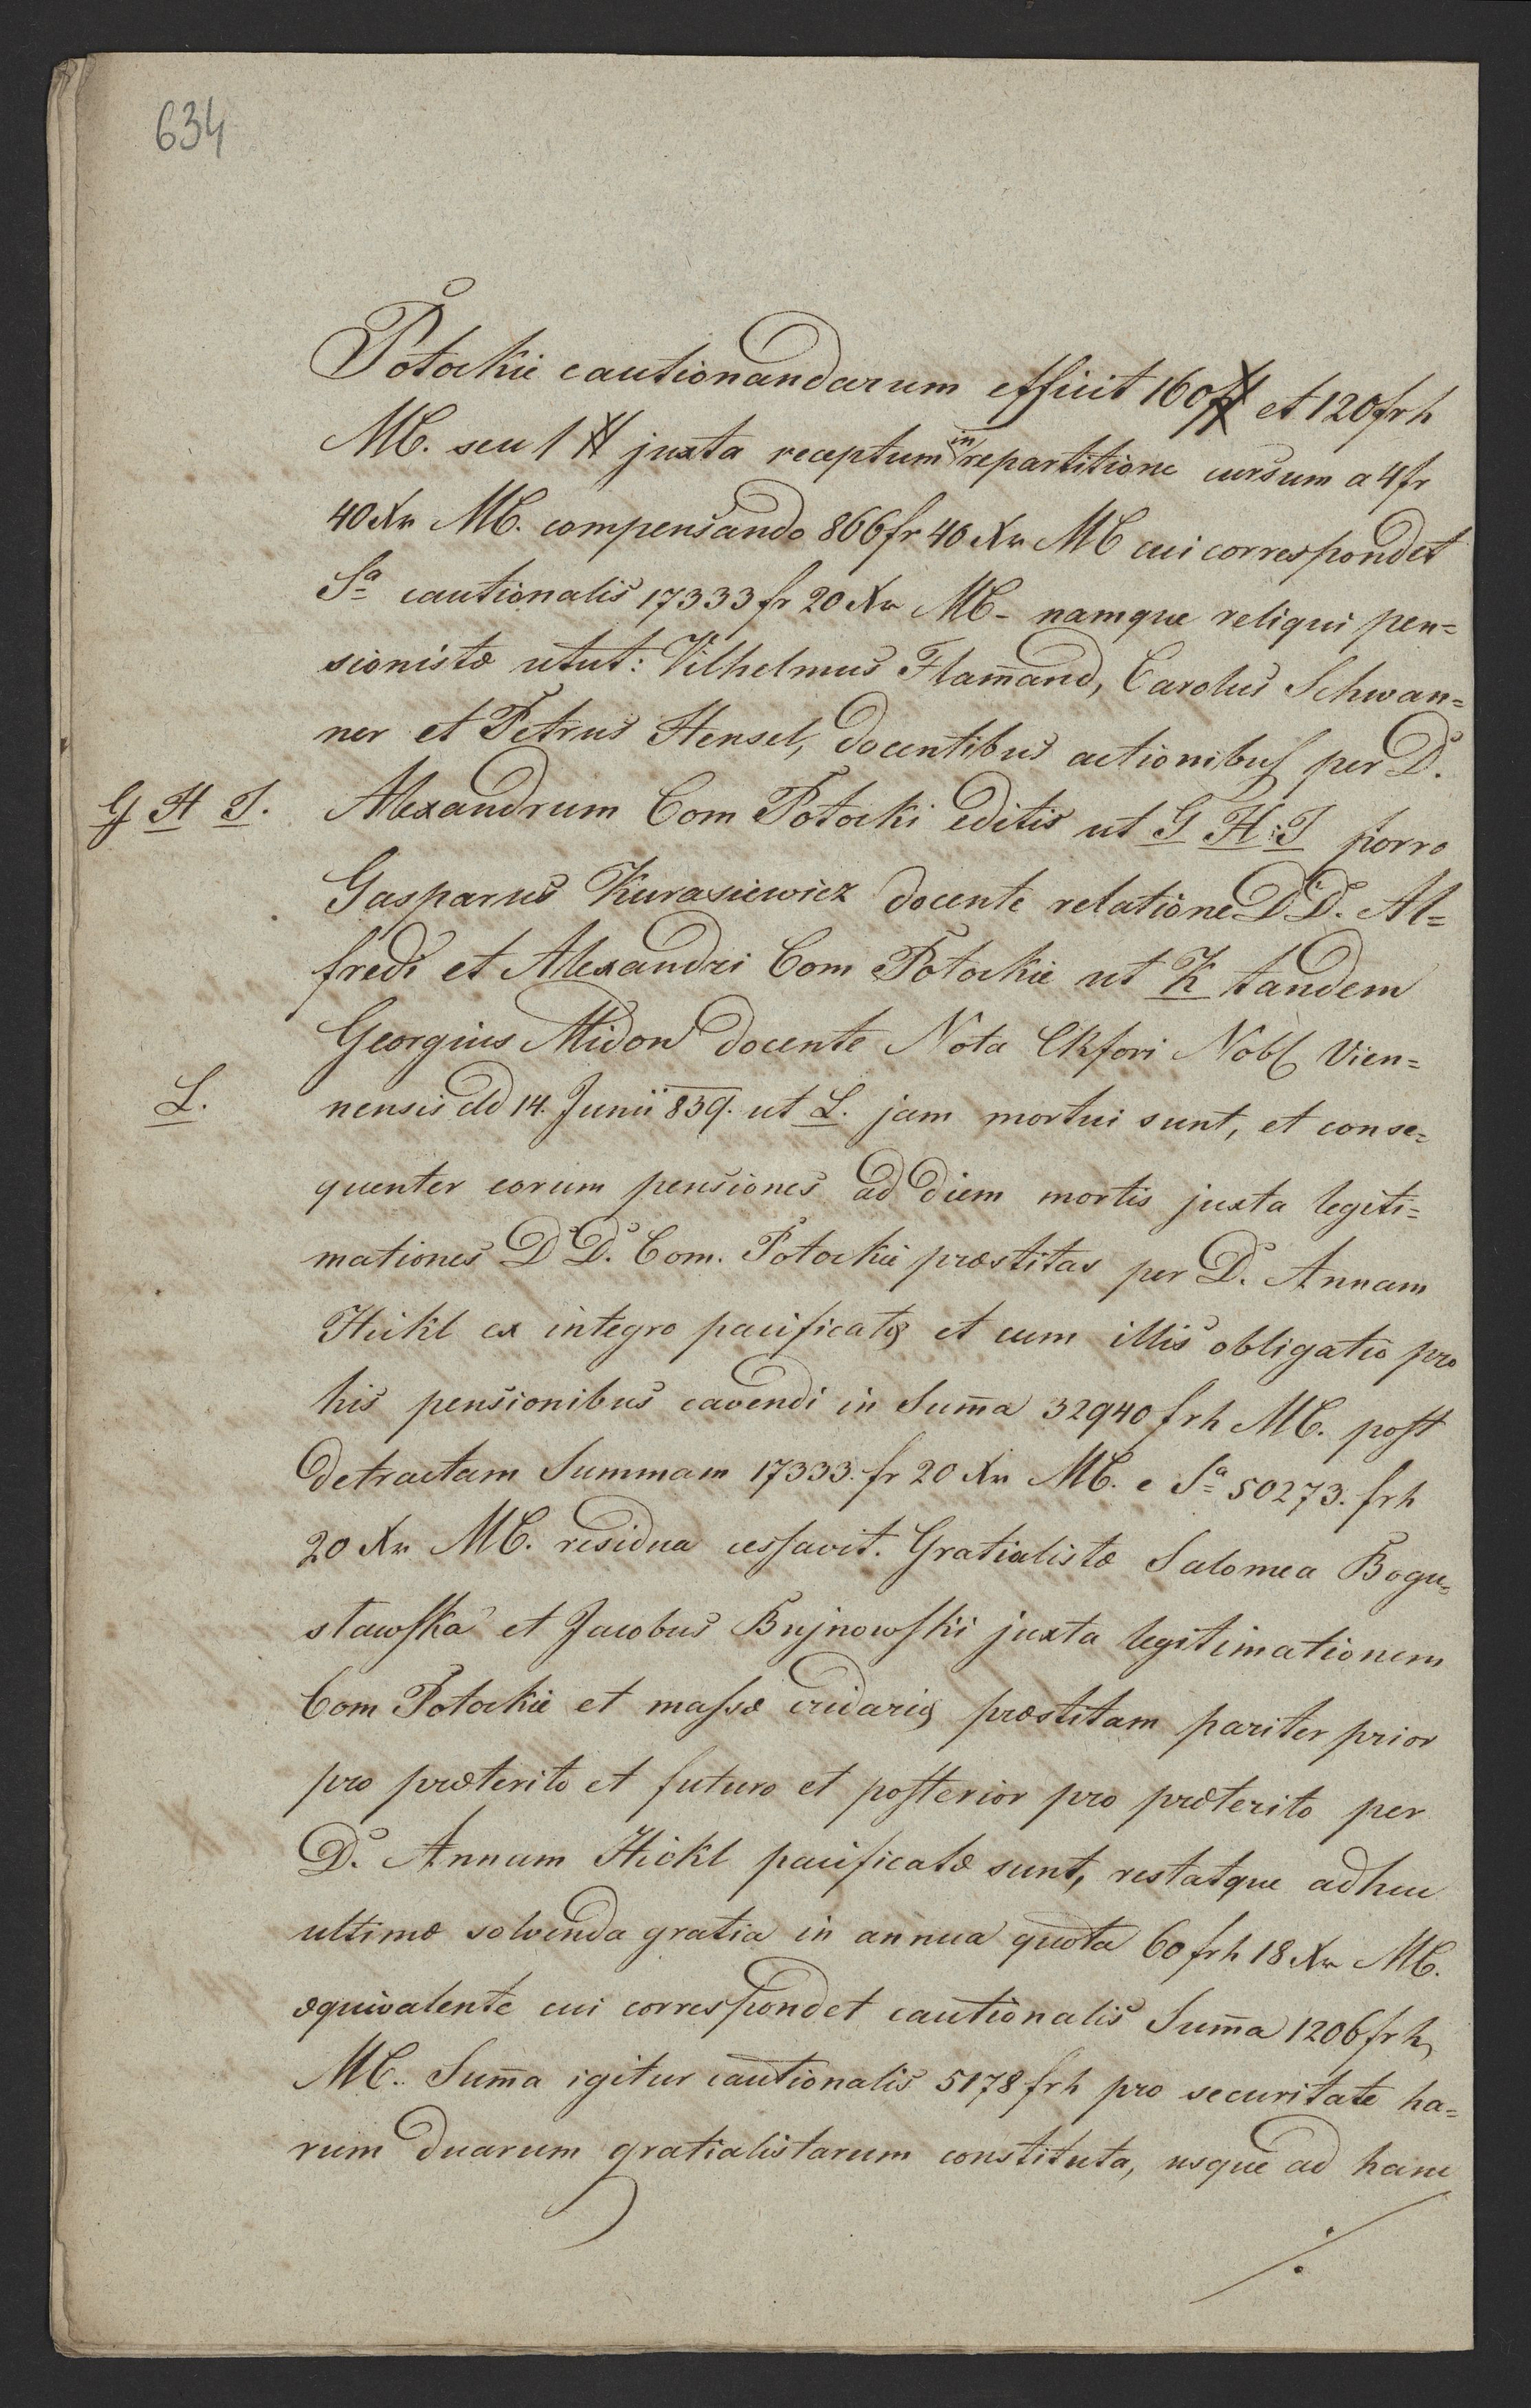 634
Potockie cautionandarum efficit 160 # et 120 frh
MC. seu 1 # juxta receptum in repartitione cursum a 4 fr
40 Xr MC. compensando 866 fr 40 Xr MC cui correspondet
Sa cautionalis 17333 fr 20 Xr MC - namque reliqui pen=
sionistæ utut: Vilhelmus Flam̄and, Carolus Schwan=
ner et Petrus Hensel, docentibus actionibus per D.
G H I. Alexandrum Com Potocki editis ut G H: I porro
Gasparus Kurasiewicz docente relatione DD. Al=
fredi et Alexandri Com Potockie ut K tandem
Georgius Midon docente Nota Ckfori Nobl Vien=
L. nensis dd 14. Junii 839. ut L. jam mortui sunt, et conse=
quenter eorum pensiones ad diem mortis juxta legiti=
mationes DD. Com. Potockie præstitas per D. Annam
Hickl ex integro pacificatæ et cum illis obligatio pro
his pensionibus cavendi in Sum̄a 32940 frh MC. post
detractam Summam 17333. fr 20 Xr MC. e Sa 50273. frh
20 Xr MC. residua cessavit. Gratialistæ Salomea Bogu=
slawska et Jacobus Bujnowski juxta legitimationem
Com Potockie et massæ cridariæ præstitam pariter prior
pro præterito et futuro et posterior pro præterito per
D. Annam Hickl pacificatæ sunt, restatque adhuc
ultimæ solvenda gratia in annua quota 60 frh 18 Xr MC.
æquivalente cui correspondet cautionalis Sum̄a 1206 frh
MC. Sum̄a igitur cautionalis 5178 frh pro securitate ha=
rum duarum gratialistarum constituta, usque ad hanc
./.